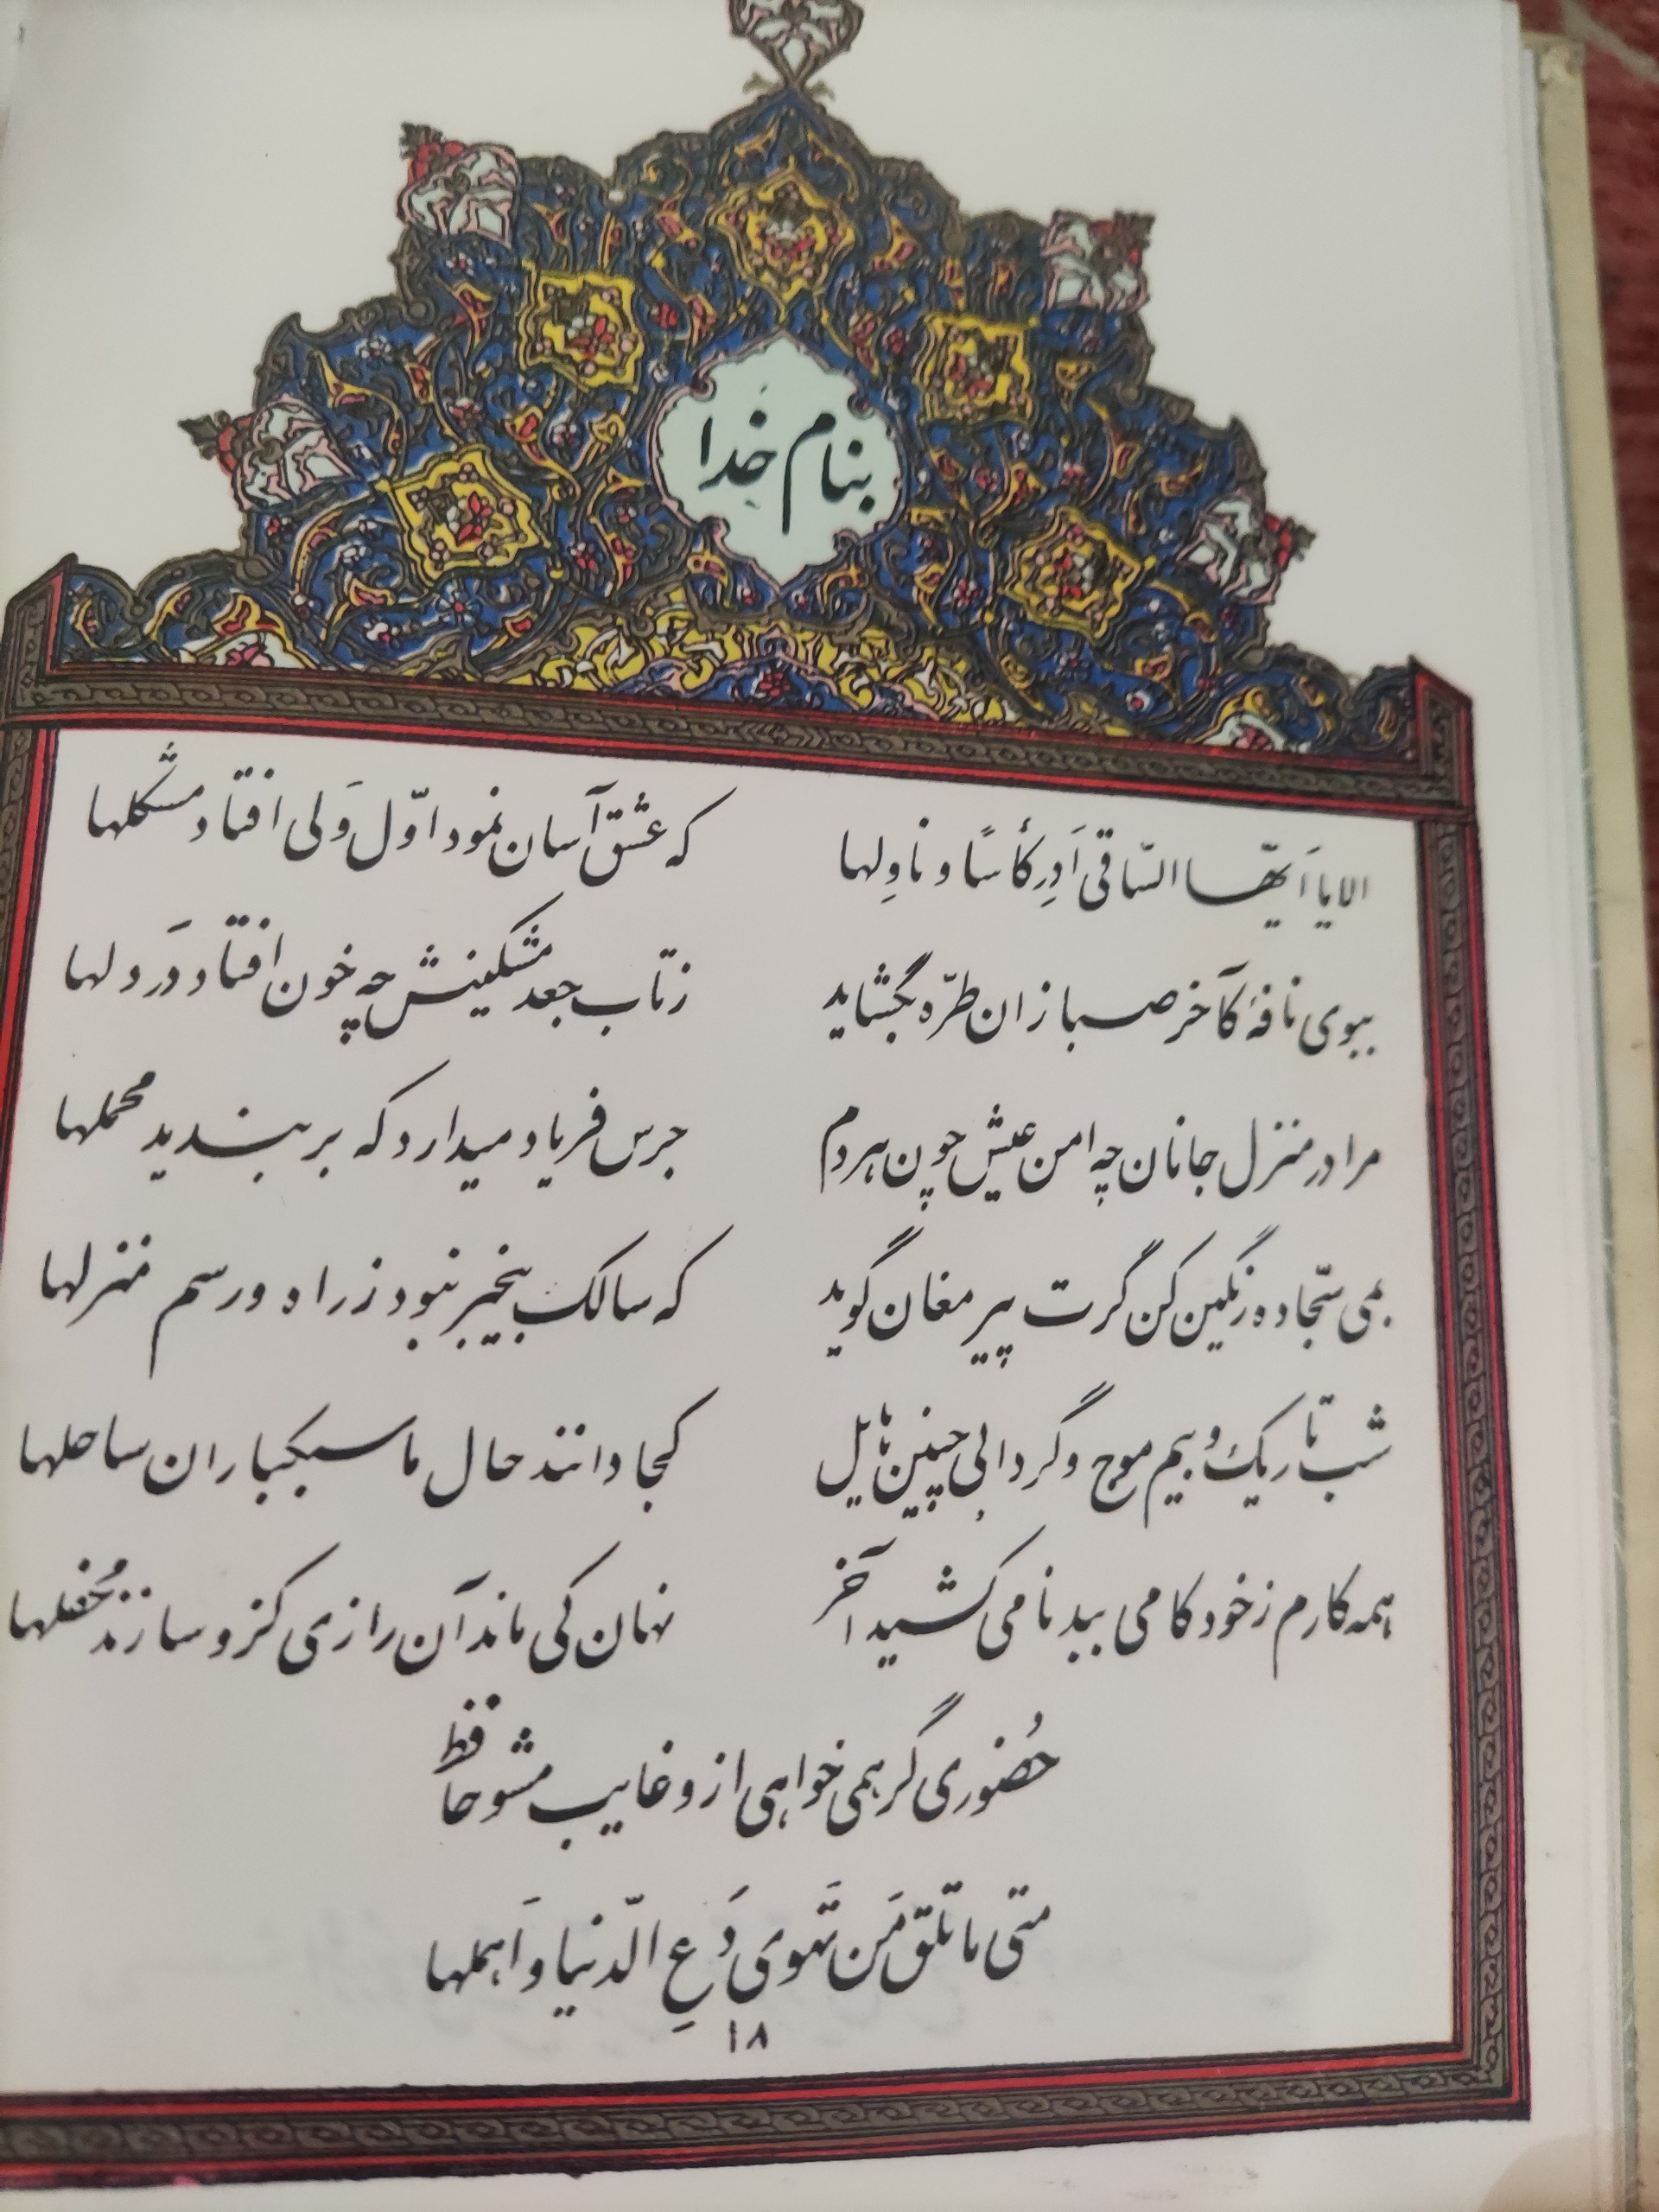 بنام خدا
الا یا اَیّها السّاقی اَدِر کأسًا و ناوِلها که عشق آسان نمود اوّل وَلی افتاد مشکلها
ببوی نافهٔ کآخر صبا زان طرّه بگشاید زتاب جعد مشکینش چه خون افتاد دَر دلها
مرا در منزل جانان چه امن عیش چون هر دم جرس فریاد میدارد که بر بندید محملها
بمی سجّاده رنگین کن گرت پیر مغان گوید که سالک بیخبر نبود ز راه و رسم منزلها
شب تاریک و بیم موج و گردابی چنین هایل کجا دانند حال ما سبکباران ساحلها
همه کارم ز خود کامی ببد نامی کشید آخر نهان کی ماند آن رازی کزو سازند مُحفلها
حُضوری گر همی خواهی ازو غایب مشو حافظ
متی ما تلق مَن تَهوی دَعِ الدّنیا و اَهملها
۱۸